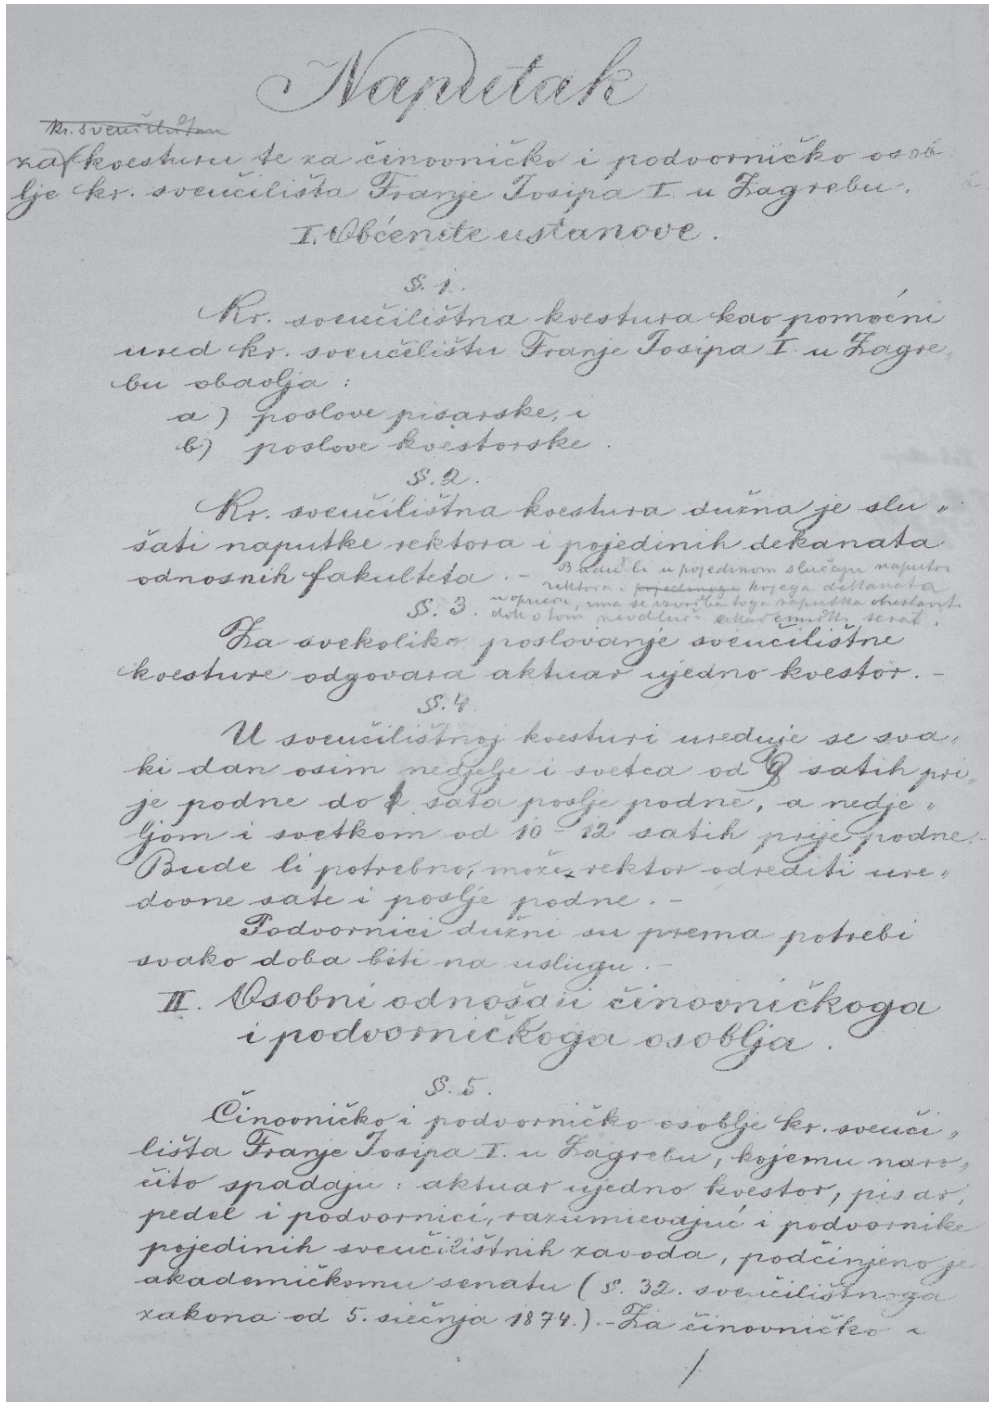 Naputak
kr. sveučilištnu
za kvesturu te za činovničko i podvorničko osob
lje kr. sveučilišta Franje Josipa I. u Zagrebu.
I. Obćenite ustanove.
§. 1.
Kr. sveučilištna kvestura kao pomoćni
ured kr. sveučilištu Franje Josipa I. u Zagre„
bu obavlja :
a) poslove pisarske, i
b) poslove kvestorske .
§. 2.
Kr. sveučilištna kvestura dužna je slu„
šati naputke rektora i pojedinih dekanata
odnosnih fakulteta . –
Budu li u pojedinom slučaju naputci
rektora i pojedinoga kojega dekanata
u oprieci, ima se izvršba toga naputka obustavit
dok o tom neodluči akademički senat.
§. 3.
Za svekoliko poslovanje sveučilištne
kvesture odgovara aktuar ujedno kvestor. –
§. 4.
U sveučilištnoj kvesturi ureduje se sva„
ki dan osim nedjelje i svetca od 9 satih pri„
je podne do 1 sata poslje podne, a nedje„
ljom i svetkom od 10 – 12 satih prije podne. –
Bude li potrebno, može rektor odrediti ure„
dovne sate i poslje podne. –
Podvornici dužni su prema potrebi
svako doba biti na uslugu. –
II. Osobni odnošaji činovničkoga
i podvorničkoga osoblja .
§. 5.
Činovničko i podvorničko osoblje kr. sveuči„
lišta Franje Josipa I. u Zagrebu, kojemu naro„
čito spadaju : aktuar ujedno kvestor, pisar,
pedel i podvornici, razumievajuć i podvornike
pojedinih sveučilištnih zavoda, podčinjeno je
akademičkomu senatu ( §. 32. sveučilištnoga
zakona od 5. siečnja 1874.). – Za činovničko i